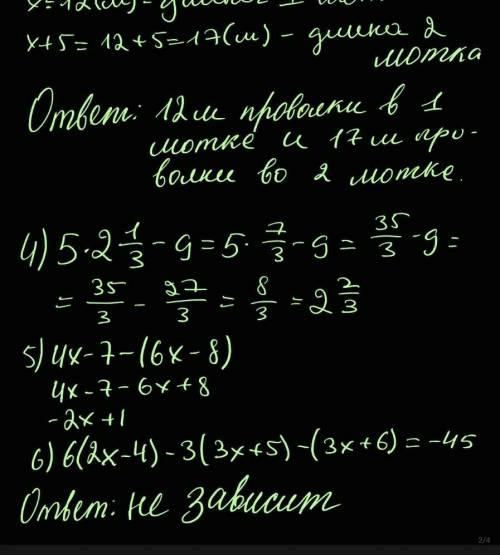 x=12(м)- длина 1 мот
x+5= 12+5=17(м) - длина 2
мотка
Ответ: 12м проволки в 1
мотке и 17м про-
волки во 2 мотке.
4) 5·2 1/3 - 9 = 5· 7/3 - 9 = 35/3 - 9 =
= 35/3 - 27/3 = 8/3 = 2 2/3
5) 4x-7-(6x-8)
4x-7-6x+8
-2x+1
6) 6(2x-4)-3(3x+5)-(3x+6)=-45
Ответ: не зависит
2/4